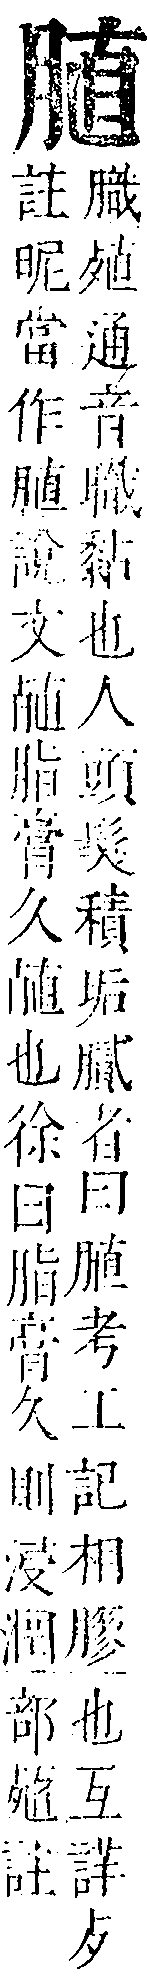 膱
膱殖通音職黏也人頭髮積垢膩者曰膱考工記相膠也互詳歹
註昵當作膱說文殖脂膏久殖也徐曰脂膏久則浸潤部殖註